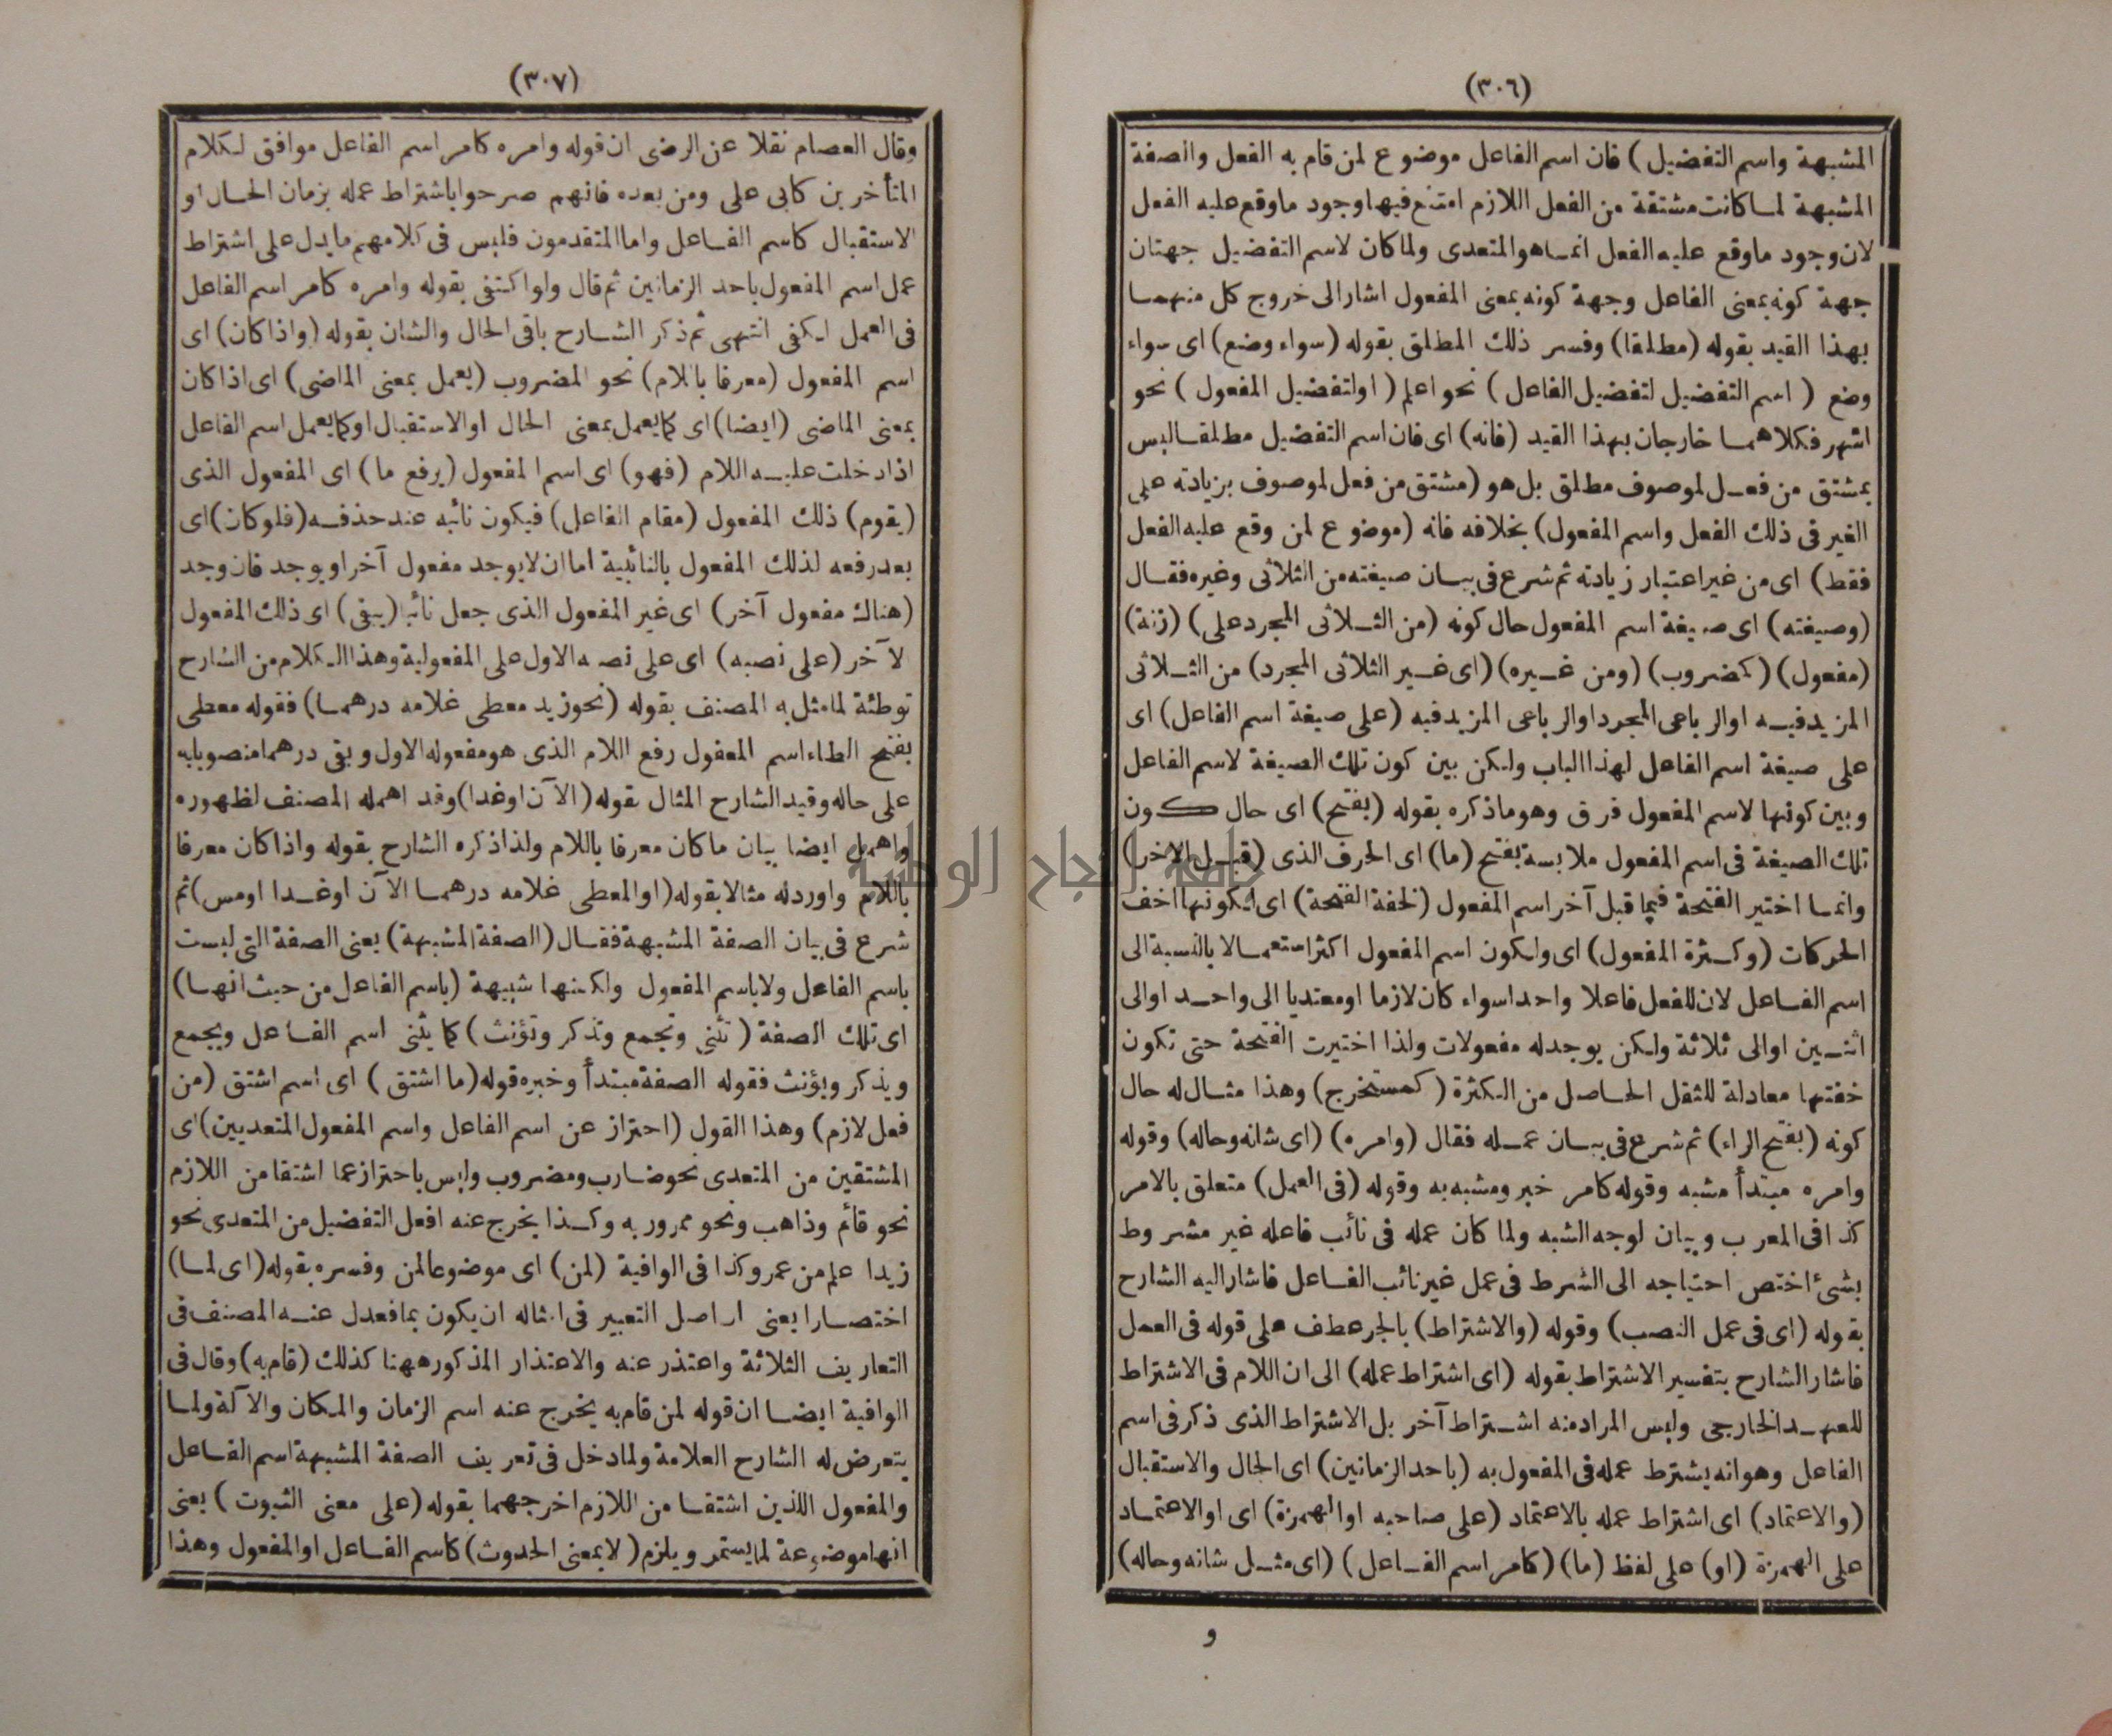 (٣٠٦)
المشبهة واسم التفضيل) فان اسم الفاعل موضوع لمن قام به الفعل والصفة
المشبهة لما كانت مشتقة من الفعل اللازم امتنع فيها وجود ما وقع عليه الفعل
لان وجود ما وقع عليه الفعل انما هو المتعدى ولما كان لاسم التفضيل جهتان
جهة كونه بمعنى الفاعل وجهة كونه بمعنى المفعول اشار الى خروج كل منهما
بهذا القيد بقوله (مطلقا) وفسر ذلك المطلق بقوله (سواء وضع) اى سواء
وضع (اسم التفضيل لتفضيل الفاعل) نحو اعلم (او لتفضيل المفعول) نحو
اشهر فكلاهما خارجان بهذا القيد (فانه) اى فان اسم التفضيل مطلقا ليس
بمشتق من فعل لموصوف مطلق بل هو (مشتق من فعل لموصوف بزيادته على
الغير فى ذلك الفعل واسم المفعول) بخلافه فانه (موضوع لمن وقع عليه الفعل
فقط) اى من غير اعتبار زيادته ثم شرع فى بيان صيغته من الثلاثى وغيره فقال
(وصيغته) اى صيغة اسم المفعول حال كونه (من الثلاثى المجرد على) (زنة)
(مفعول) (كمضروب) (ومن غيره) (اى غير الثلاثى المجرد) من الثلاثى
المزيد فيه او الرباعى المجرد او الرباعى المزيد فيه (على صيغة اسم الفاعل) اى
على صيغة اسم الفاعل لهذا الباب ولكن بين كون تلك الصيغة لاسم الفاعل
وبين كونها لاسم المفعول فرق وهو ما ذكره بقوله (بفتح) اى حال كون
تلك الصيغة فى اسم المفعول ملابسة بفتح (ما) اى الحرف الذى (قبل الاخر)
وانما اختير الفتحة فيما قبل آخر اسم المفعول (لخفة الفتحة) اى لكونها اخف
الحركات (وكثرة المفعول) اى ولكون اسم المفعول اكثر استعمالا بالنسبة الى
اسم الفاعل لان للفعل فاعلا واحدا سواء كان لازما او متعديا الى واحد او الى
اثنين او الى ثلاثة ولكن يوجد له مفعولات ولذا اختيرت الفتحة حتى تكون
خفتها معادلة للثقل الحاصل من الكثرة (كمستخرج) وهذا مثال له حال
كونه (بفتح الراء) ثم شرع فى بيان عمله فقال (وامره) (اى شانه وحاله) وقوله
وامره مبتدأ مشبه وقوله كامر خبر ومشبه به وقوله (فى العمل) متعلق بالامر
كذا فى المعرب وبيان لوجه الشبه ولما كان عمله فى نائب فاعله غير مشروط
بشئ اختص احتياجه الى الشرط فى عمل غير نائب الفاعل فاشار اليه الشارح
بقوله (اى فى عمل النصب) وقوله (والاشتراط) بالجر عطف على قوله فى العمل
فاشار الشارح بتفسير الاشتراط بقوله (اى اشتراط عمله) الى ان اللام فى الاشتراط
للعهد الخارجى وليس المراد منه اشتراط آخر بل الاشتراط الذى ذكر فى اسم
الفاعل وهو انه يشترط عمله فى المفعول به (باحد الزمانين) اى الحال والاستقبال
(والاعتماد) اى اشتراط عمله بالاعتماد (على صاحبه او الهمزة) اى او الاعتماد
على الهمزة (او) على لفظ (ما) (كامر اسم الفاعل) (اى مثل شانه وحاله)
و
(٣٠٧)
وقال العصام نقلا عن الرضى ان قوله وامره كامر اسم الفاعل موافق لكلام
المتأخرين كابى على ومن بعده فانهم صرحوا باشتراط عمله بزمان الحال او
الاستقبال كاسم الفاعل واما المتقدمون فليس فى كلامهم ما يدل على اشتراط
عمل اسم المفعول باحد الزمانين ثم قال ولو اكتفى بقوله وامره كامر اسم الفاعل
فى العمل لكفى انتهى ثم ذكر الشارح باقى الحال والشان بقوله (واذا كان) اى
اسم المفعول (معرفا باللام) نحو المضروب (يعمل بمعنى الماضى) اى اذا كان
بمعنى الماضى (ايضا) اى كما يعمل بمعنى الحال او الاستقبال او كما يعمل اسم الفاعل
اذا دخلت عليه اللام (فهو) اى اسم المفعول (يرفع ما) اى المفعول الذى
(يقوم) ذلك المفعول (مقام الفاعل) فيكون نائبه عند حذفه (فلو كان) اى
بعد رفعه لذلك المفعول بالنائبية اما ان لا يوجد مفعول آخر او يوجد فان وجد
(هناك مفعول آخر) اى غير المفعول الذى جعل نائبا (يبقى) اى ذلك المفعول
لآخر (على نصبه) اى على نصبه الاول على المفعولية وهذا الكلام من الشارح
توطئة لما مثل به المصنف بقوله (نحو زيد معطى غلامه درهما) فقوله معطى
بفتح الطاء اسم المعفول رفع اللام الذى هو مفعوله الاول وبقى درهما منصوبا به
على حاله وقيد الشارح المثال بقوله (الآن او غدا) وقد اهمله المصنف لظهوره
واهمل ايضا بيان ما كان معرفا باللام ولذا ذكره الشارح بقوله واذا كان معرفا
باللام واورد له مثالا بقوله (او المعطى غلامه درهما الآن او غدا او مس) ثم
شرع فى بيان الصفة المشبهة فقال (الصفة المشبهة) يعنى الصفة التى ليست
باسم الفاعل ولا باسم المفعول ولكنها شبيهة (باسم الفاعل من حيث انها)
اى تلك الصفة (تثنى وتجمع وتذكر وتؤنث) كما يثنى اسم الفاعل ويجمع
ويذكر ويؤنث فقوله الصفة مبتدأ وخبره قوله (ما اشتق) اى اسم اشتق (من
فعل لازم) وهذا القول (احتراز عن اسم الفاعل واسم المفعول المتعديين) اى
المشتقين من المتعدى نحو ضارب ومضروب وليس باحتراز عما اشتقا من اللازم
نحو قائم وذاهب ونحو ممرور به وكذا يخرج عنه افعل التفضيل من المتعدى نحو
زيدا علم من عمرو كذا فى الوافية (لمن) اى موضوعا لمن وفسره بقوله (اى لما)
اختصارا يعنى ان اصل التعبير فى امثاله ان يكون بما فعدل عنه المصنف فى
التعاريف الثلاثة واعتذر عنه والاعتذار المذكور ههنا كذلك (قام به) وقال فى
الوافية ايضا ان قوله لمن قام به يخرج عنه اسم الزمان والمكان والآلة ولما
يتعرض له الشارح العلامة ولما دخل فى تعريف الصفة المشبهة اسم الفاعل
والمفعول اللذين اشتقا من اللازم اخرجهما بقوله (على معنى الثبوت) يعنى
انها موضوعة لما يستمر ويلزم (لا بمعنى الحدوث) كاسم الفاعل او المفعول وهذا
جامعة النجاح الوطنية